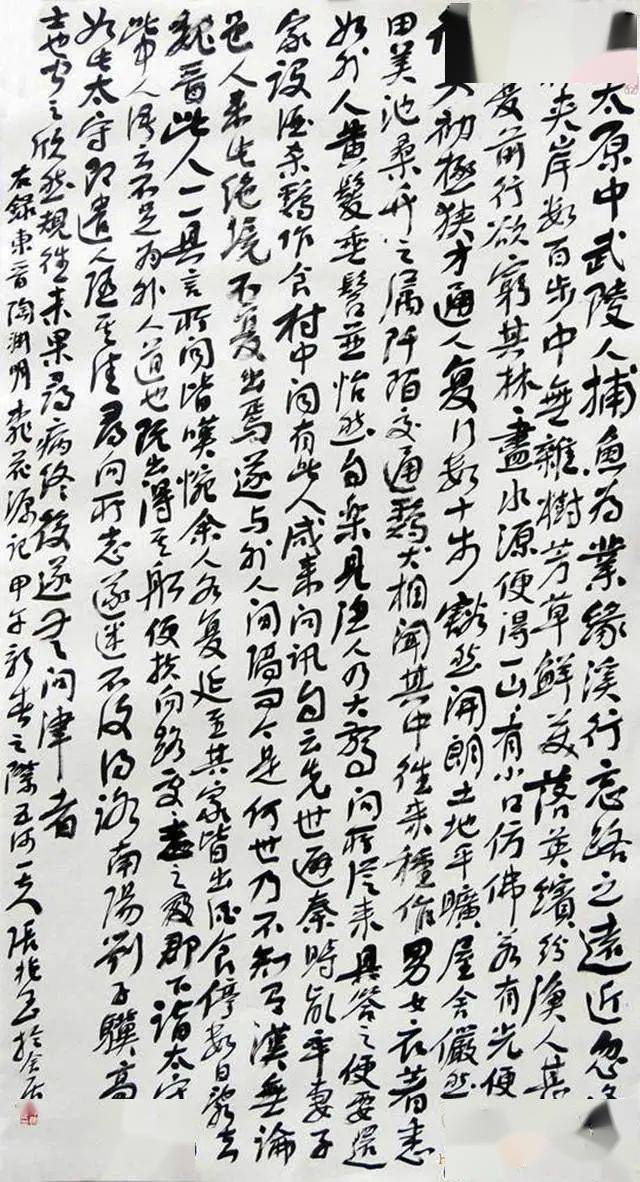 太原中武陵人捕魚為業緣溪行忘路之遠近忽
夾岸數百步中無雜樹芳草鮮美落英繽紛漁人甚
復前行欲窮其林〻盡水源便得一山〻有小口仿佛若有光便
初極狹才通人復行數十步豁然開朗土地平曠屋舍儼然
田美池桑竹之屬阡陌交通鷄犬相聞其中往來種作男女衣著悉
如外人黃髮垂髫並怡然自樂見漁人乃大驚問所從來具答之便要還
家設酒殺鷄作食村中聞有此人咸來問訊自云先世避秦時亂率妻子
邑人來此絕境不復出焉遂与外人間隔問今是何世乃不知有漢無論
魏晉此人一一具言所聞皆嘆惋余人各復延至其家皆出酒食停數日辭去
此中人語云不足為外人道也既出得其船便扶向路處〻志之及郡下詣太守
如此太守即遣人隨其往尋向所志遂迷不復得路南陽劉子驥高
士也聞之欣然規往未果尋病終後遂無問津者
右錄東晉陶淵明桃花源記甲午新春之際五河一夫張兆玉於合肥